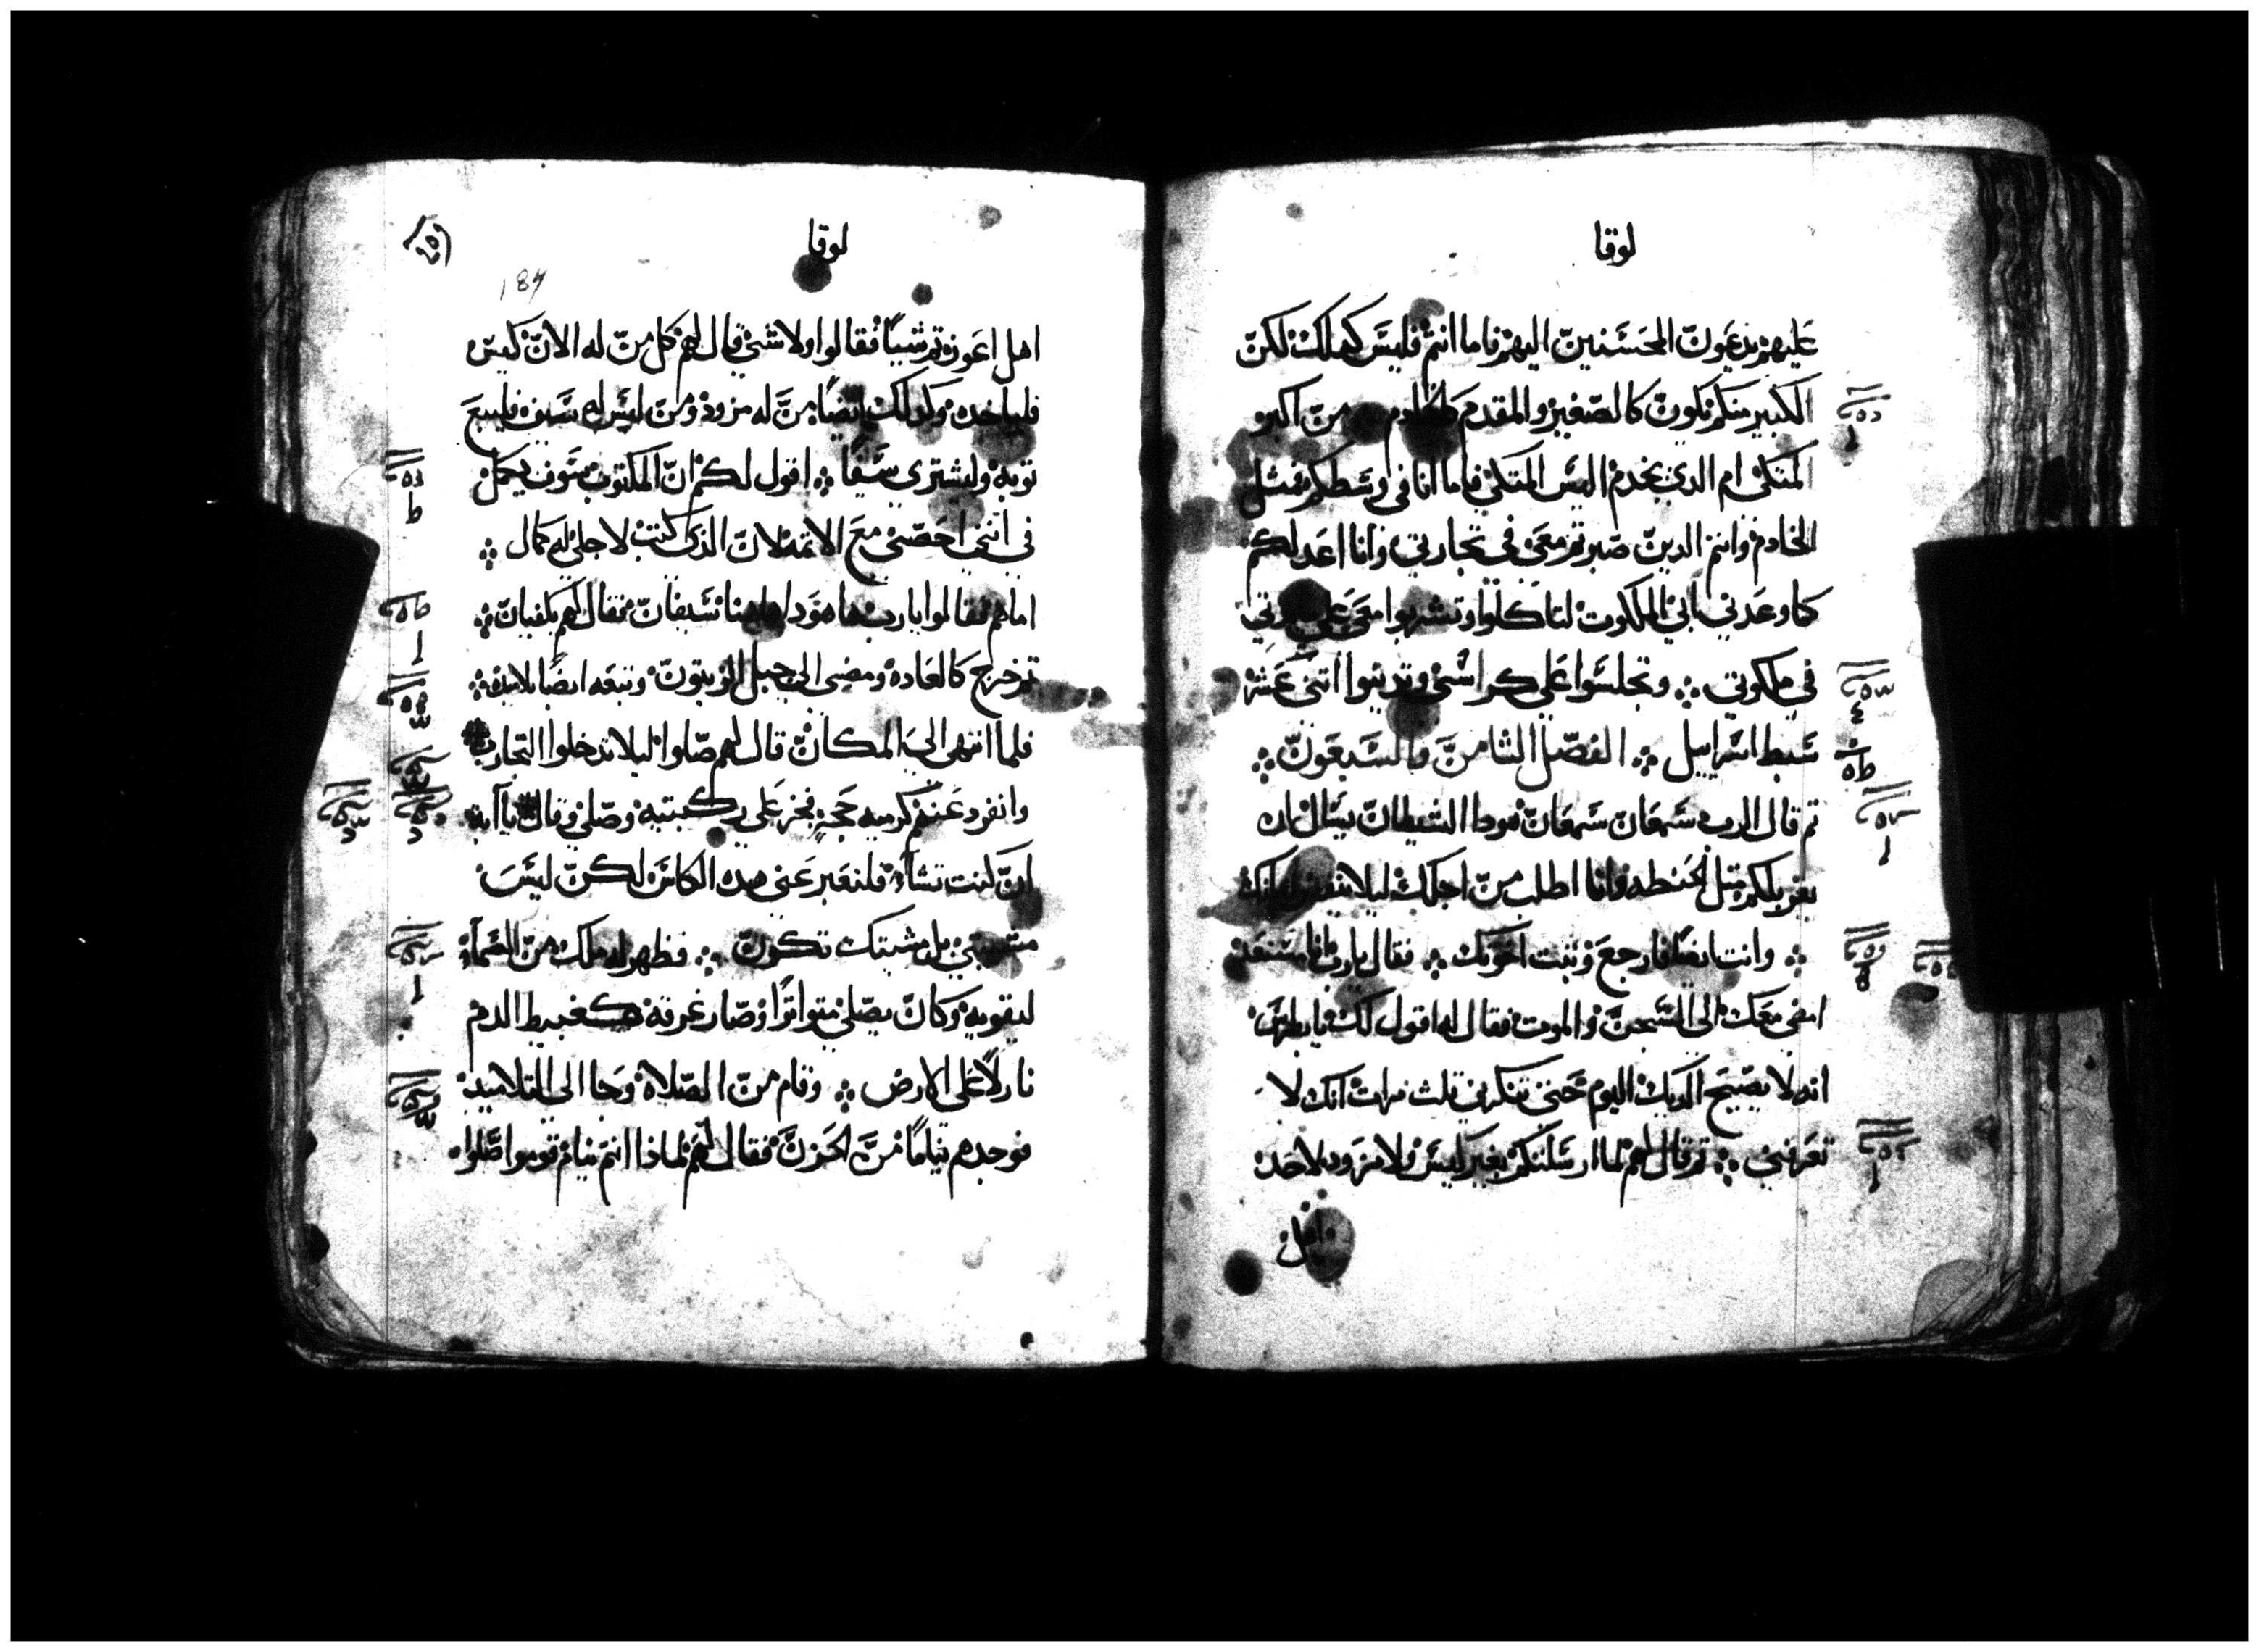 لوقا
عليهم يدعون المحسنين اليهم فاما انتم فليس كدلك لكن
الكبير منكم يكون كالصغير والمقدم كالخادم من اكبر
المتكى ام الدي يخدم اليس المتكى فاما انا في وسطكم مثل
الخادم وانتم الدين صبرتم معى في تجاربي وانا اعد لكم
كما وعدني ابي الملكوت لتاكلوا وتشربوا معى على
في ملكوتي ܀ وتجلسوا على كراسى وتدينوا اتنى عشر
سبط اسراييل ܀ الفصل الثامن والسبعون ܀
تم قال الرب سمعان سمعان هودا الشيطان يسال ان
يغربلكم مثل الحنطه وانا اطلب من اجلك ليلا
܀ وانت ايضا فارجع وثبت اخوتك ܀ فقال يا رب انا مستعد
امضى معك الى السجن والموت فقال له اقول لك يا بطرس
انه لا يصيح الديك اليوم حتى تنكرني تلت مرات انك لا
تعرفني ܀ تم قال لهم لما ارسلتكم بغير كيس ولا مزود ولا حدا
اهل
لوقا
187
اهل اعوزتم شيا فقالوا ولا شى قال لهم كل من له الان كيس
فلياخده وكدلك ايضا من له مزود ومن ليس له سيف فليبع
توبه وليشترى سيفا ܀ اقول لكم ان المكتوب سوف يكمل
في انني احصى مع الاتمه لان الذى كتب لاجلى له كمال ܀
اما هم فقالوا يا رب ها هودا هاهنا سيفان فقال لهم يكفيان ܀
تم خرج كالعاده ومضى الى جبل الزيتون وتبعه ايضا تلاميده ܀
فلما انتهى الى المكان قال لهم صلوا ليلا تدخلوا التجارب
وانفرد عنهم كرميه حجر فخر على ركبتيه وصلى وقال يا ابه
ان كنت تشاء فلتعبر عنى هده الكاس لكن ليس
مشيتي بل مشيتك تكون ܀ فظهر له ملك من السماء
ليقويه وكان يصلى متواترا وصار عرقه كعبيط الدم
نازلا على الارض ܀ وقام من الصلاه وجا الى التلاميد
فوجدهم نياما من الحزن فقال لهم لماذا انتم نيام قوموا صلوا